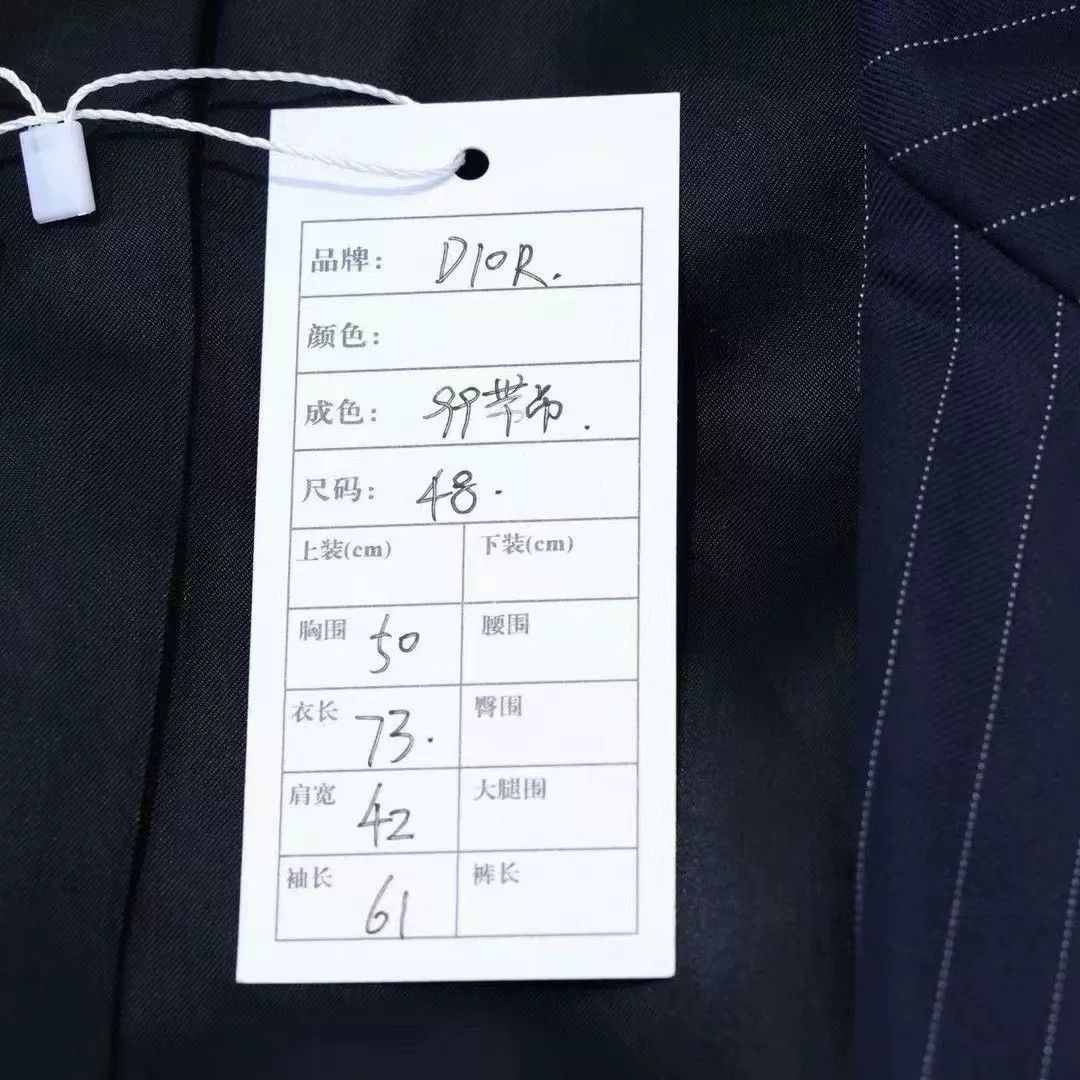 品牌: DIOR.
颜色:
成色: 99带吊.
尺码: 48.
上装(cm) 下装(cm)
胸围 50 腰围
衣长 73. 臀围
肩宽 42 大腿围
袖长 61 裤长